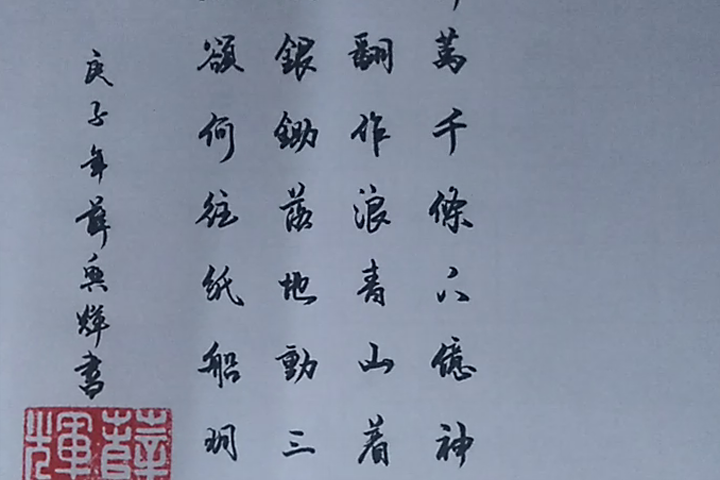 萬千條六億神
翻作浪青山着
銀鋤落地動三
欲何往紙船明
庚子年薛興輝書
薛
輝